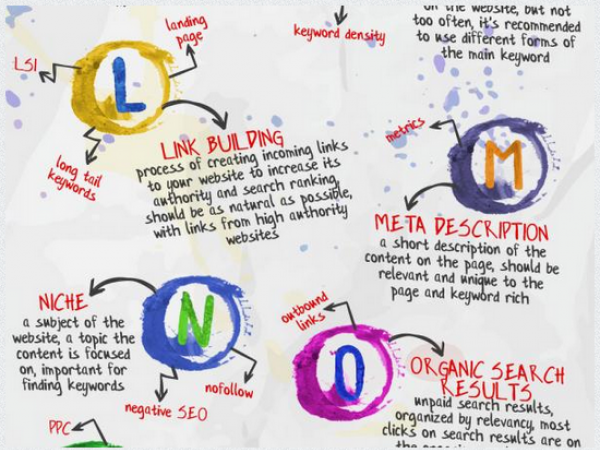 on the website, but not
too often, it's recommended
to use different forms of
the main keyword
keyword density
landing
page
LSI
L
long tail
keywords
LINK BUILDING
process of creating incoming links
to your website to increase its
authority and search ranking,
should be as natural as possible,
with links from high authority
websites
metrics
M
META DESCRIPTION
a short description of the
content on the page, should be
relevant and unique to the
page and keyword rich
NICHE
a subject of the
website, a topic the
content is focused
on, important for
finding keywords
N
nofollow
negative SEO
outbound
links
O
ORGANIC SEARCH
RESULTS
unpaid search results,
organized by relevancy, most
clicks on search results are on
PPC